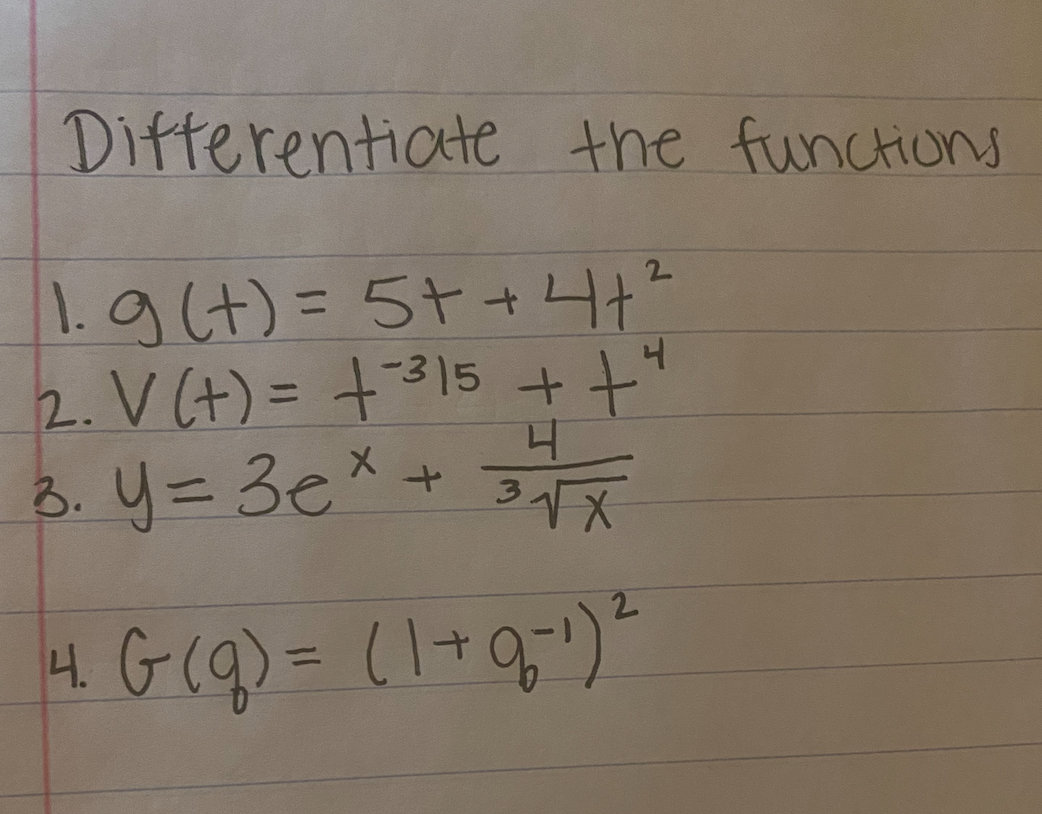 Differentiate the functions
1. g(t) = 5t + 4t²
2. V(t) = t⁻³/⁵ + t⁴
3. y = 3eˣ + 4/³√x
4. G(q) = (1 + q⁻¹)²